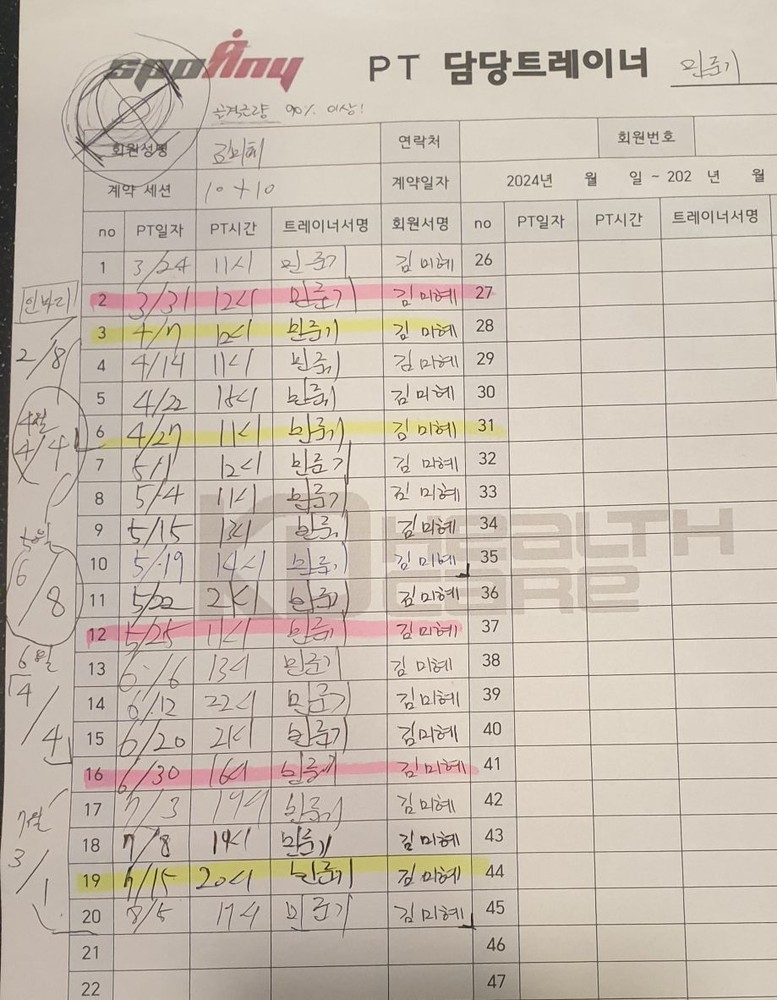 spoAny PT 담당트레이너 민준기
골격근량 90% 이상!
회원성명 김미혜 연락처 회원번호
계약 세션 10+10 계약일자 2024년 월 일 ~ 202 년 월
no PT일자 PT시간 트레이너서명 회원서명 no PT일자 PT시간 트레이너서명
1 3/24 11시 민준기 김미혜 26
인바디
2 3/31 12시 민준기 김미혜 27
3 4/7 12시 민준기 김미혜 28
2/8
4 4/14 11시 민준기 김미혜 29
5 4/22 18시 민준기 김미혜 30
4월
6 4/27 11시 민준기 김미혜 31
4/4
7 5/1 12시 민준기 김미혜 32
8 5/4 11시 민준기 김미혜 33
9 5/15 13시 민준기 김미혜 34
5월
10 5/19 14시 민준기 김미혜 35
6/8
HEALTH
CARE
11 5/22 21시 민준기 김미혜 36
12 5/25 11시 민준기 김미혜 37
6월
13 6/6 13시 민준기 김미혜 38
4/4
14 6/12 22시 민준기 김미혜 39
15 6/20 21시 민준기 김미혜 40
16 6/30 16시 민준기 김미혜 41
17 7/3 19시 민준기 김미혜 42
7월
18 7/8 14시 민준기 김미혜 43
3/1
19 7/15 20시 민준기 김미혜 44
20 8/5 17시 민준기 김미혜 45
21 46
22 47